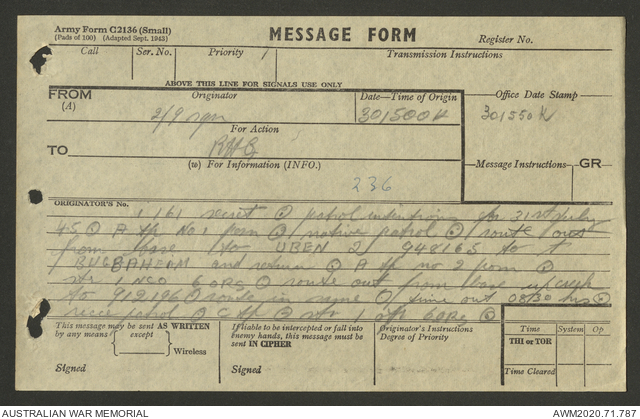 Army Form C2136 (Small)
(Pads of 100) (Adapted Sept. 1943)
MESSAGE FORM
Register No.
Call
Ser. No.
Priority 1
Transmission Instructions
ABOVE THIS LINE FOR SIGNALS USE ONLY
FROM
(A)
Originator
Date—Time of Origin
Office Date Stamp
2/9
301500K
301550K
For Action
TO
RHQ
(w) For Information (INFO.)
Message Instructions
GR
236
ORIGINATOR'S No.
1/61 secret patrol intentions for 31st July
45 A tp No. 1 native patrol route out
from base to UBEN 2 948165 to
and return A tp no 2
str 1 NCO 6 ORS route out from base up creek
to 912196 route in same time out 0830 hrs
recce patrol C tp str 1 off 6 ORS
This message may be sent AS WRITTEN
by any means except
Wireless
Signed
If liable to be intercepted or fall into
enemy hands, this message must be
sent IN CIPHER
Signed
Originator's Instructions
Degree of Priority
Time
System
Op
THI or TOR
Time Cleared
AUSTRALIAN WAR MEMORIAL
AWM2020.71.787